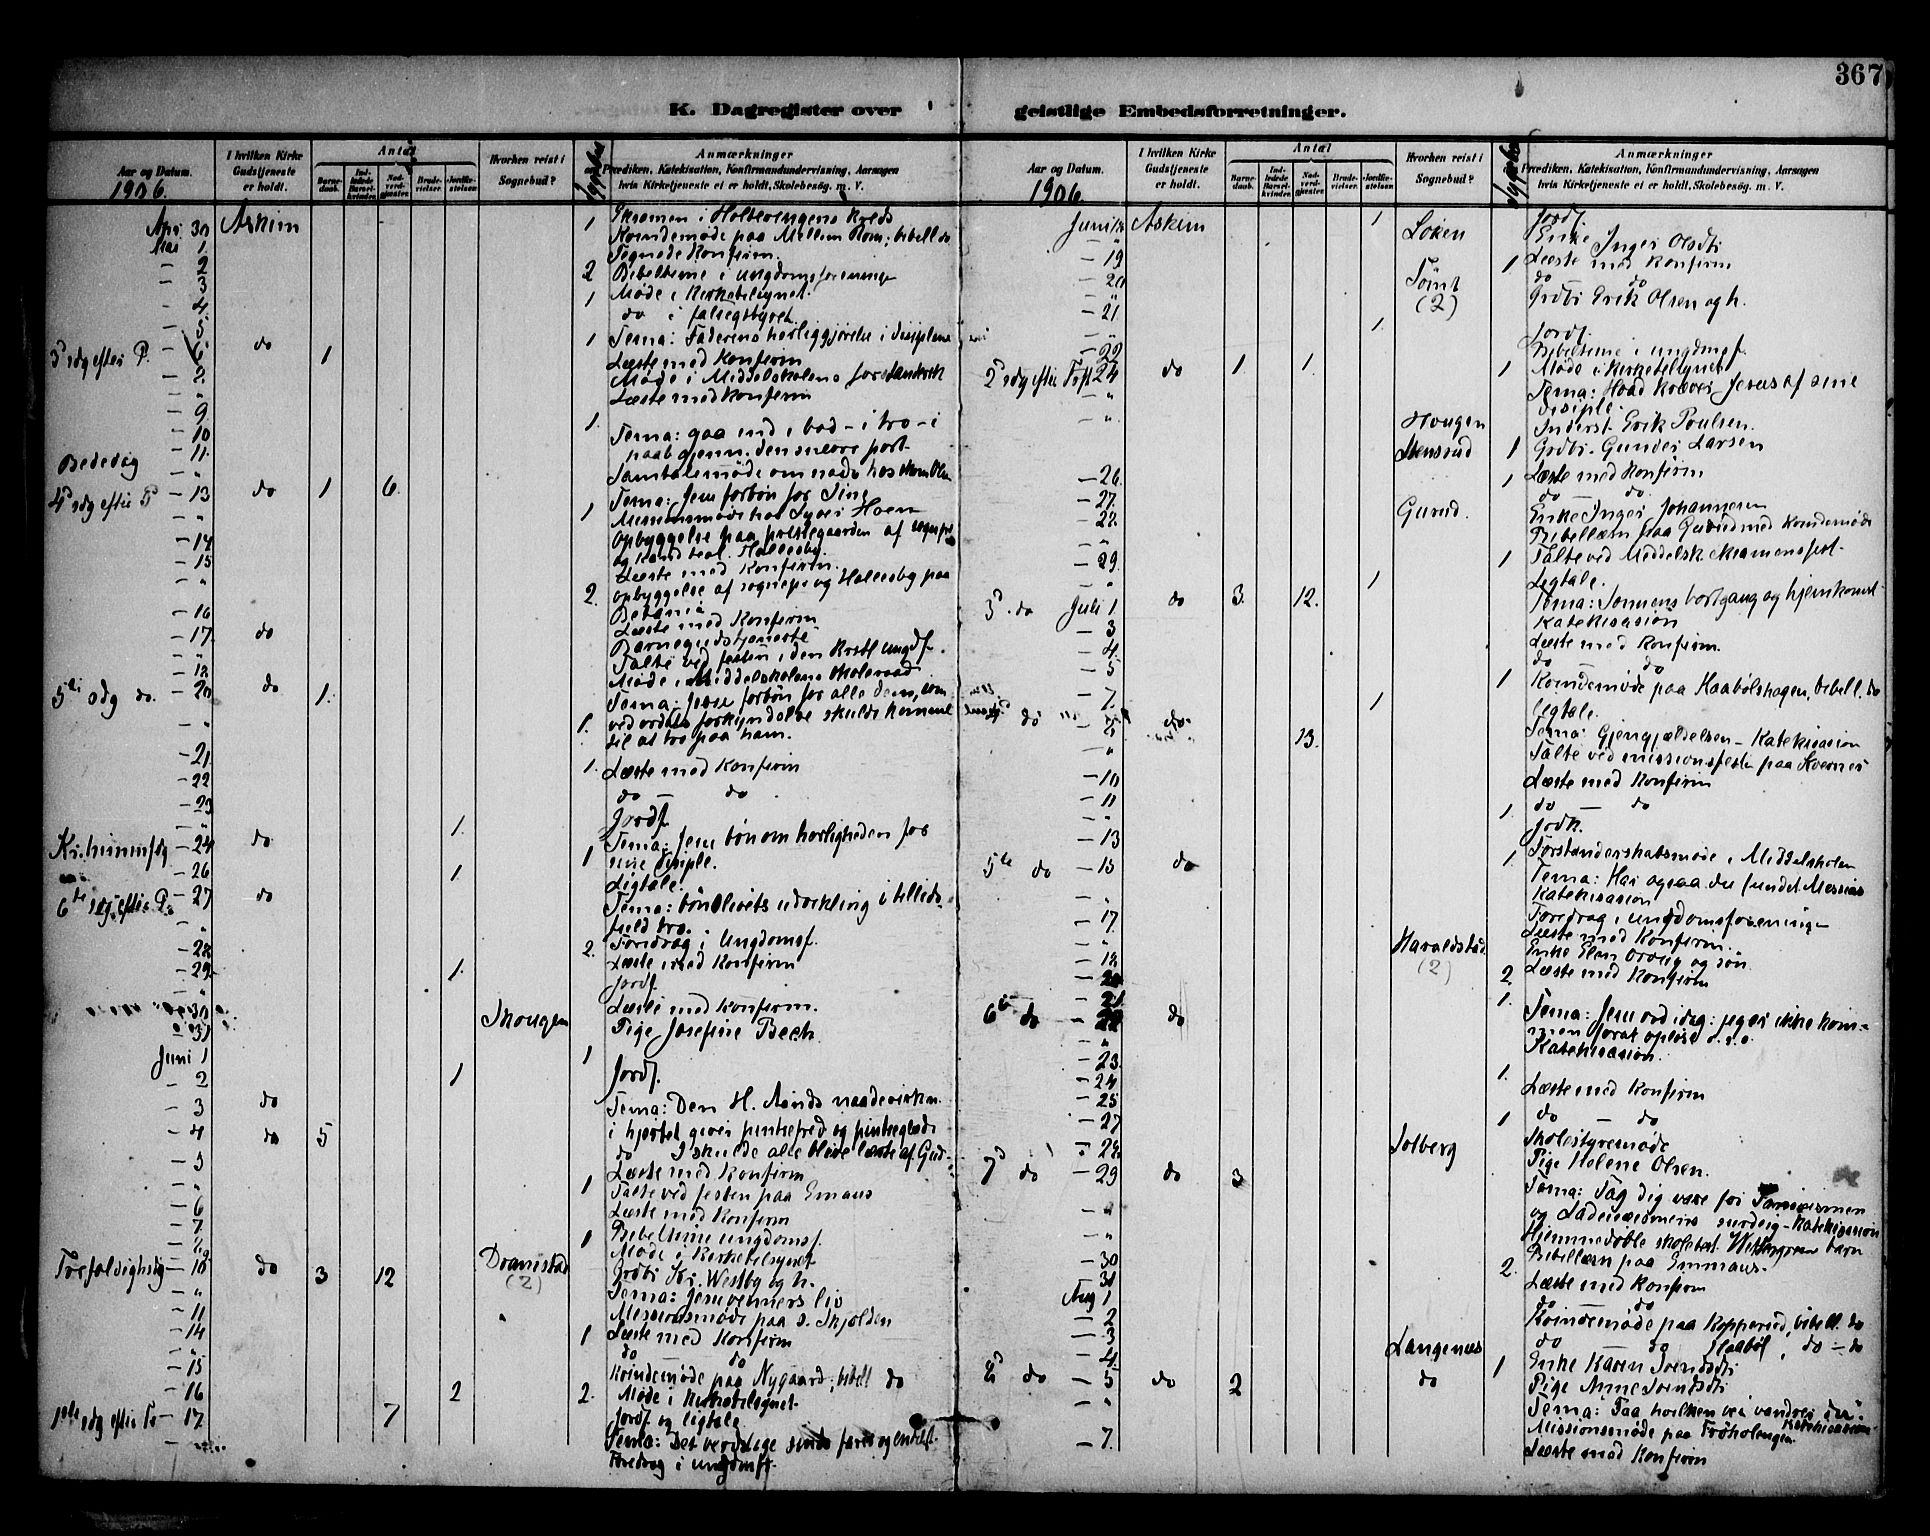 367
K. Dagregister over geistlige Embedsforretninger.
Aar og Datum.
1906.
I hvilken Kirke Gudstjeneste er holdt.
Antal
Barne-daab.
Ind-ledede Barsel-kvinder.
Nad-verd-gjæster.
Brude-vielser.
Jordfæ-stelser.
Hvorhen reist i Sognebud?
Sygebes
Anmærkninger
Prædiken, Katekisation, Konfirmandundervisning, Aarsagen
hvis Kirketjeneste ei er holdt, Skolebesøg. m. V.
Apr 30 Askim 1 Eksamen i Holtevengens kreds
Mai 1 Kvindemøde paa Mellem Rom; bibell. do
- 2 Tegnede Konfirm.
- 3 2 Bibeltime i ungdomsforening
- 4 1 Møde i Kirketilsynet.
- 5 do i
3 sdg efter P. - 6 do 1 1 Tema: Faderens herliggjørelse i disiplene
Læste med Konfirm
Møde i Middelskolens forstanderk
- " Læste med Konfirm
- 9
- 10 1. Tema: gaa ind i bod - i tro - i
Bededag - 11 paabegynn. den snevre port
- " Samtalemøde om
4 sdg efter P - 13 do 1 6 Tema: Jesu forbøn for Sine
- " 1 Missionsmøde hos Hoen
- 14 opbyggelse paa prestegaarden af sognepr
- 15 og Kand. teol. Hallesby.
- " Læste med Konfirm.
2. opbyggelse af sognepr og Hallesby paa
- 16 Betania
Læste med Konfirm
- 17 do Barnegudstjeneste
- " Talte ved festen i den kristl. ungdf.
- 18 Møde i Middelskolens skoleraad
5te sdg do. - 20 do 1. Tema: Jesu forbøn for alle dem, som
- " 1. ved ordets forkyndelse skulde komme
til at tro paa ham.
- 21 1. Læste med Konfirm
- 22
- 23 do - do
- " 1. Jordf.
Kr. himmfdg - 24 do Tema: Jesu bøn om herligheden for
1 sine disiple.
- 26 1 Ligtale.
6te sdg efter P. - 27 do Tema: bønslivets udvikling i tillids-
- " fuld tro.
- 28 2. Foredrag i Ungdomsf.
- 29 1. Læste med Konfirm
- " Jordf.
- 30 Læste med Konfirm.
- 31 Skougen Pige Josefine Bech
Juni 1 1
- 2 1 Jordf.
- 3 do Tema: Den H. Aands naadevirkn.
- 4 do 5 i hjertet giver pinsefred og pinseglæde
do I skulde alle blive lærte af Gud-
- 5 Læste med Konfirm
- " 1 Talte ved festen paa Emaus
- 6 Læste med Konfirm
- 7 1 Bibeltime ungdomsf.
Møde i Kirketilsynet
Trefoldighdg - 10 do 3 12 Dramstad (2) Grdbr Kr. Westby og h.
- " Tema: Jesu venners liv
- 11 Missionsmøde paa s. Skjolden
- 14 1 Læste med Konfirm
- " do do
- 15 Kvindemøde paa Nygaard; bibell do
- 16 2 2. Møde i Kirketilsynet
1ste sdg efter Tr - 17 7 Jordf og ligtale
Tema: Det verdslige sinds farer og endel.
Foredrag i ungdomsf.
Aar og Datum.
1906.
I hvilken Kirke Gudstjeneste er holdt.
Antal
Barne-daab.
Ind-ledede Barsel-kvinder.
Nad-verd-gjæster.
Brude-vielser.
Jordfæ-stelser
Hvorhen reist i Sognebud?
Sygebes
Anmærkninger
Prædiken, Katekisation, Konfirmandundervisning, Aarsagen
hvis Kirketjeneste ei er holdt, Skolebesøg. m. V.
Juni 18 Askim 1 Løken Jordf.
- " Enke Inger Olsdtr
- 19 1 Læste med Konfirm
- 20 Tømt do do
- " (2) Grdbr Erik Olsen og h.
- 21
- " 1. Jordf.
- 22 Bibeltime i ungdomsf.
2 sdg efter Tref 24 do 1. 1. 1 Møde i Kirketilsynet
- " Tema: Hvad kræver Jesus af sine
disiple.
- " Hougen Inderst. Erik Poulsen.
Stensrud 1 Grdbr. Gunder Larsen
- 26. 1 Læste med Konfirm
- 27. do - do.
- 28. Gurud. Enke Inger Johannesen
- " Bibellæsn paa Gurud med Kvindemøde
- 29. 1 Talte ved Middelsk. eksamensfest.
- " 1 Ligtale.
3. do Juli 1 do 3. 12. Tema: Sønnens bortgang og hjemkomst
Katekisasion
- 3 Læste med Konfirm.
- 4 do do
- 5 1 Kvindemøde paa Haabolshagen, bibell. do
- 7. 1 Ligtale.
4 do - 8 do Tema: Gjengjældelsen - Katekisasion
- " 13. Talte ved missionsfesten paa
- 10 Læste med Konfirm
- 11 do - do
- " 1. Jordf.
- 13 Forstanderskabsmøde i Middelskolen
5te do - 15 do 1. Tema: Har ogsaa du fundet Messias
Katekisasion
- " Foredrag i ungdomsforening
- 17. Læste med Konfirm.
- " Haraldstad (2) Enke Elen og søn
- 18 2. Læste med Konfirm
- 20
- 21. 1.
6te do - 22 do Tema: Jesu ord idag: jeg er ikke kom-
- " men forat opløse o.s.v.
- 23. Katekisasion.
- 24 1. Læste med Konfirm
- 25 do - do
- 27 1 Skolestyremøde
- 28 Solberg Pige Helene Olsen.
7 do - 29 do 3 Tema: Tag dig vare for Farisæismen
- " og Saducæismens surdeig - Katekisasion
- " Hjemmedøbte skolebst. barn
- 30 Bibellæsn paa Emmaus.
- 31 2. Læste med Konfirm
Aug 1 do - do
- 2 Kvindemøde paa Kopperud, bibell. do
- 3 do do Haabøl, do - do
- 4 Langenæs Enke Karen Svendsdtr
8 do - 5 do 2 do 1 Pige Anne Svendsdtr
Tema: Paa hvilken vei vandrer du?
Katekisasion
Missionsmøde paa Frøholengen
- 7. Læste med Konfirm